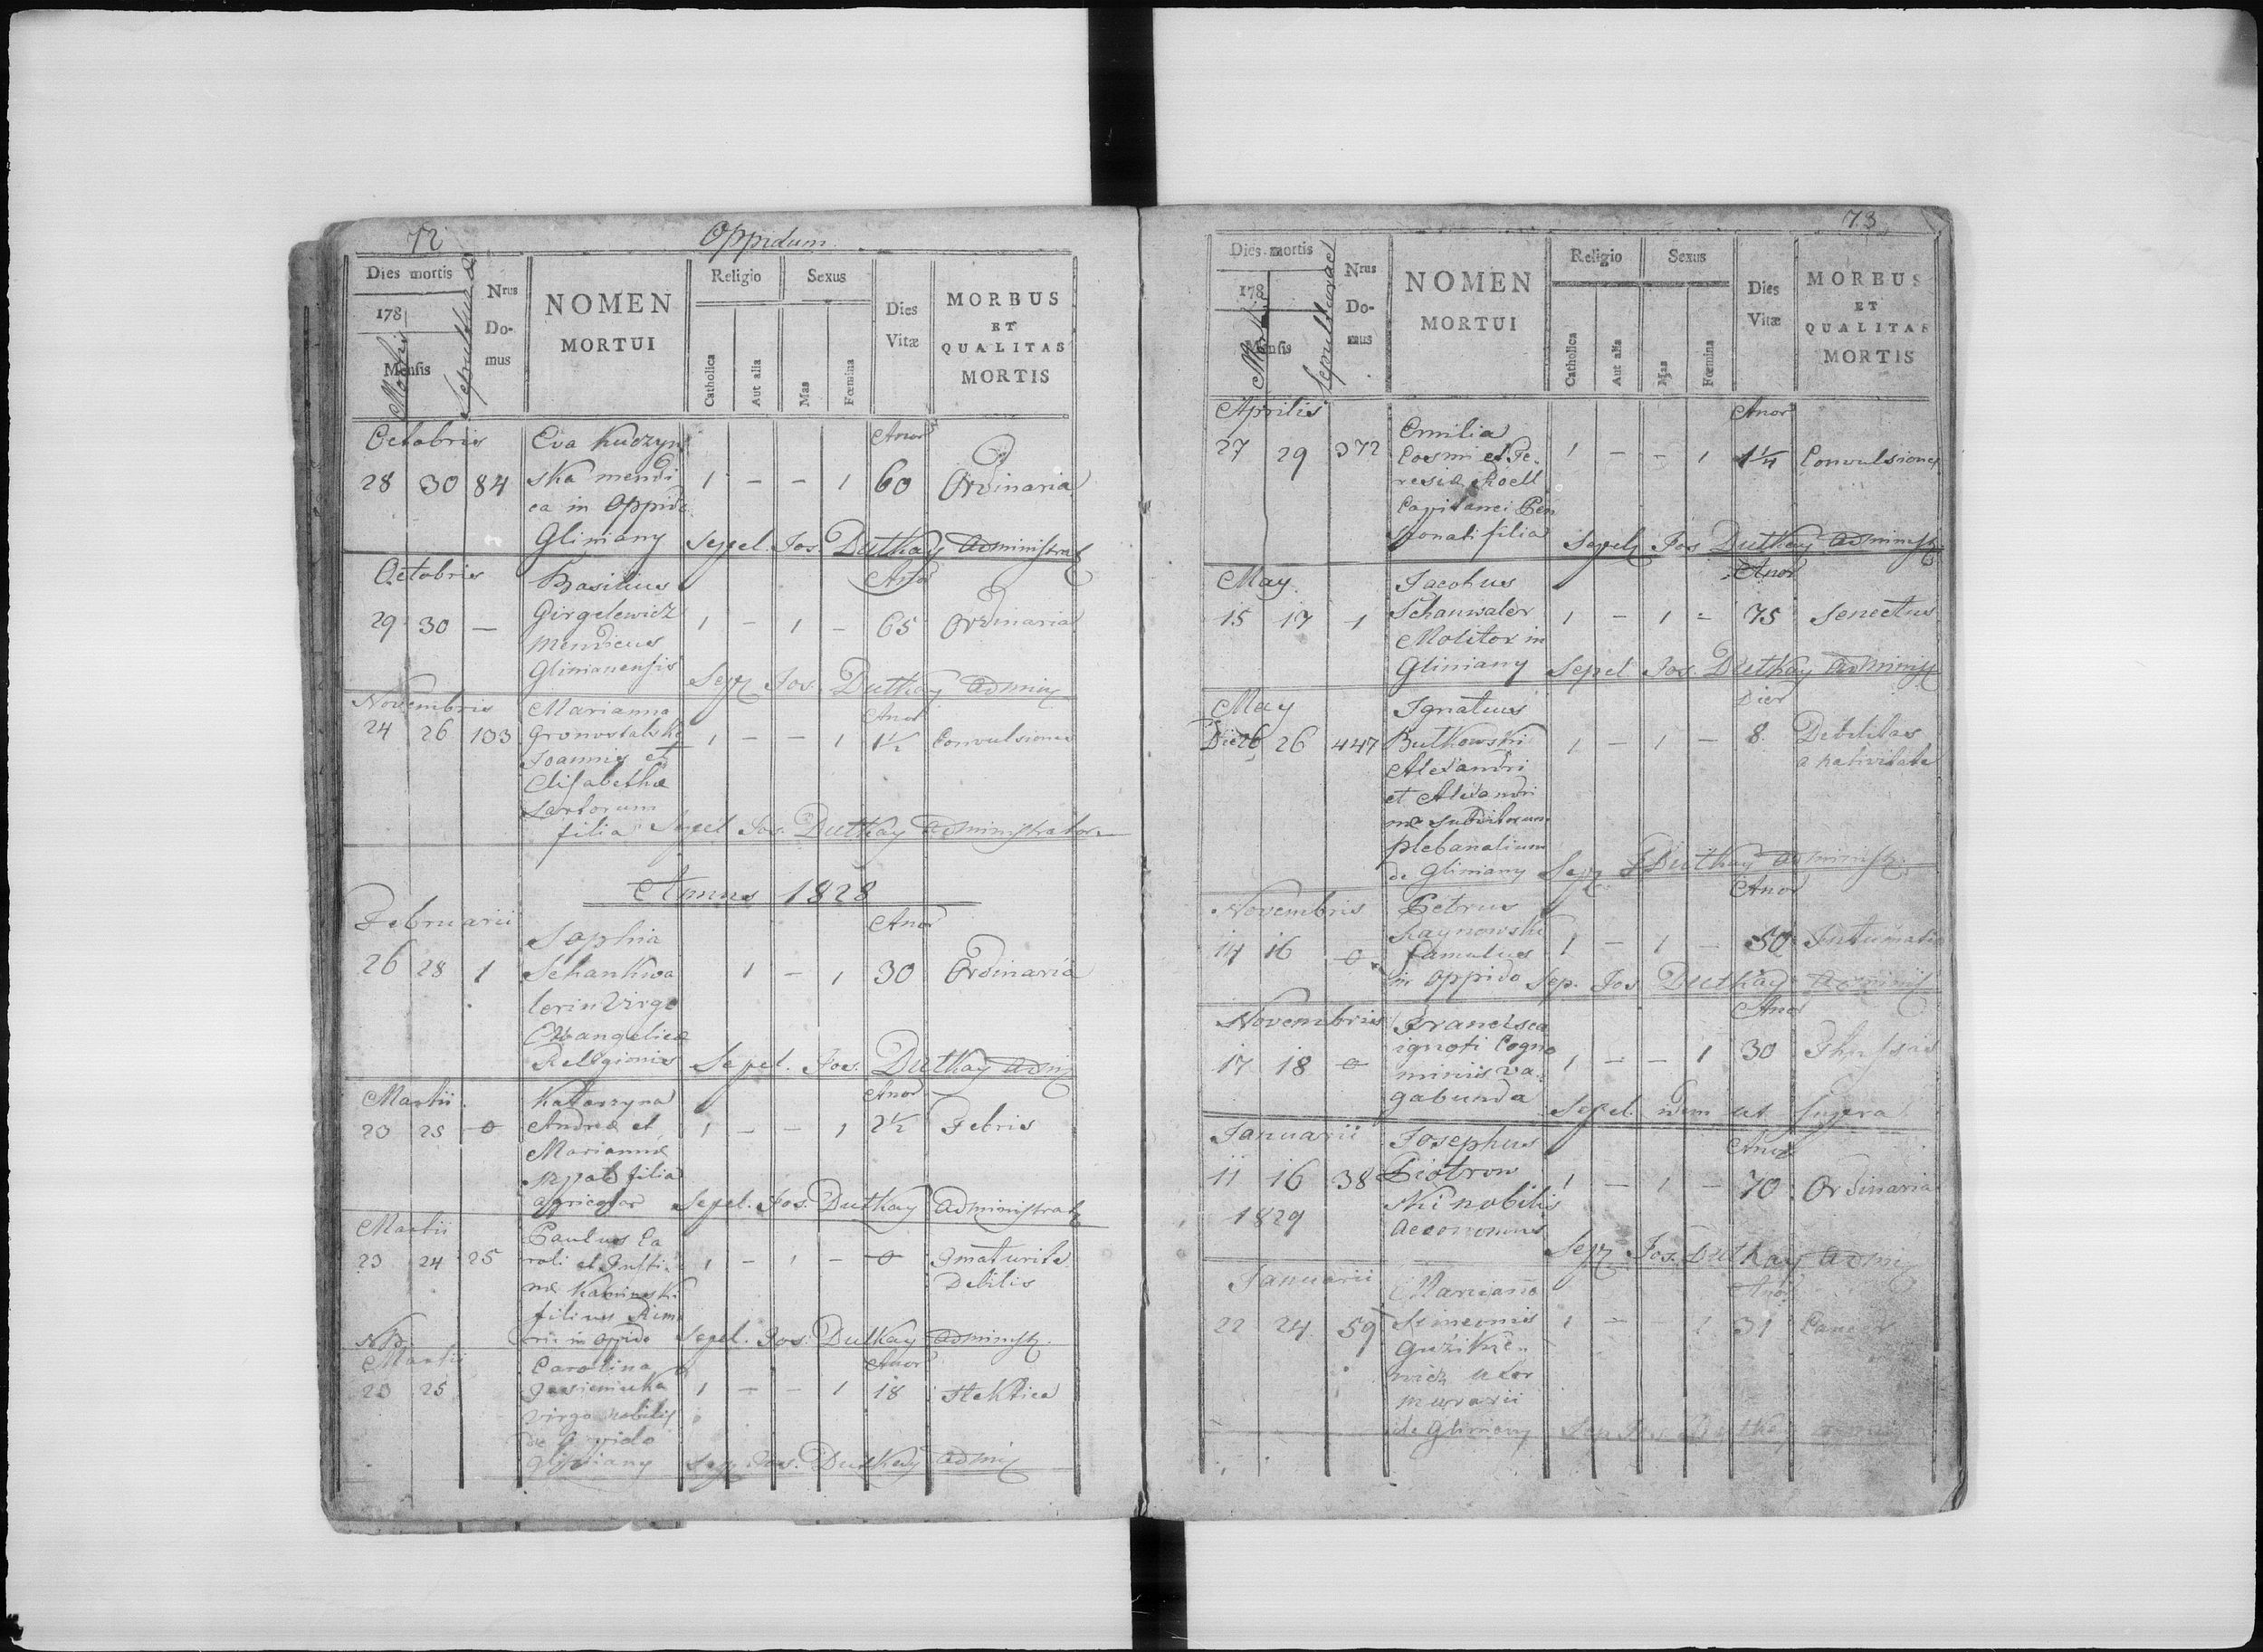 72
Oppidum
Dies mortis
178
Mensis
Mortis
Sepulturae
Nrus
Do-
mus
NOMEN
MORTUI
Religio
Catholica
Aut alia
Sexus
Mas
Fœmina
Dies
Vitæ
MORBUS
ET
QUALITAS
MORTIS
Octobris
28 30 84
Eva Kudzyn
ska mendi
ca in Oppido
Gliniany
1 - - 1
Anor
60
Ordinaria
Sepel. Jos. Dutkay Administrat
Octobris
29 30 -
Basilius
Girgelewicz
mendicus
Glinianensis
1 - 1 -
Anor
65
Ordinaria
Sep Jos. Dutkay Admin
Novembris
24 26 103
Marianna
Gronostalska
Joannis et
Elisabethæ
Sartorum
filia
1 - - 1
Anor
1½
Convulsiones
Sepel Jos. Dutkay Administrator
Annus 1828
Februarii
26 28 1
Sophia
Schankwa
lerin Virgo
Evangelicæ
Religionis
1 - 1
Anor
30
Ordinaria
Sepel. Jos. Dutkay Admi
Martii
23 25 0
Katarzyna
Andreæ et
Mariannæ
filia
agricolar
1 - - 1
Anor
2½
Febris
Sepel. Jos. Dutkay Administrat
Martii
23 24 25
Paulus Ca
roli et Justi
næ Kaminski
filius
in oppido
1 - 1 - 0
Imaturite
Debilis
Sepel. Jos. Dutkay Administ.
NB.
Martii
23 25
Carolina
virgo nobilis
de Oppido
Gliniany
1 - - 1
Anor
18
Hektica
Sep. Jos. Dutkay Admi
73
Dies mortis
178
Mensis
Mortis
Sepulturae
Nrus
Do-
mus
NOMEN
MORTUI
Religio
Catholica
Aut alia
Sexus
Mas
Fœmina
Dies
Vitæ
MORBUS
ET
QUALITAS
MORTIS
Aprilis
27 29 372
Emilia
Cosmi et Te-
resiæ Roell
Capitanei Pen
sionati filia
1 - - 1
Anor
1¼
Convulsiones
Sepel Jos Dutkay Administ
May
15 17 1
Jacobus
Schanwaler
Molitor in
Gliniany
1 - 1 -
Anor
75
Senectus
Sepel Jos. Dutkay Admini
May
Die 26 26 447
Ignatius
Butkowski
Alexandri
et Alexandri
næ subditorum
plebanalium
de Gliniany
1 - 1 -
Dier
8.
Debilitas
a nativitate
Sep J Dutkay Administ
Novembris
14 16 0
Petrus
Raynowski
famulus
in oppido
1 - 1 -
Anor
50
Sep. Jos Dutkay Adminis
Novembris
17 18 0
Francisca
ignoti Cogno
minis va-
gabunda
1 - - 1
Anor
30
Sepel. idem ut supra
Januarii
11 16 38
1829
Josephus
Piotrow
ski nobilis
aeconomus
1 - 1 -
Anor
70
Ordinaria
Sep Jos. Dutkay Admi
Januarii
22 24 59
Marianna
Simeonis
uxor
murarii
de Gliniany
1 - - 1
Anor
31
Cancer
Sep Jos Dutkay